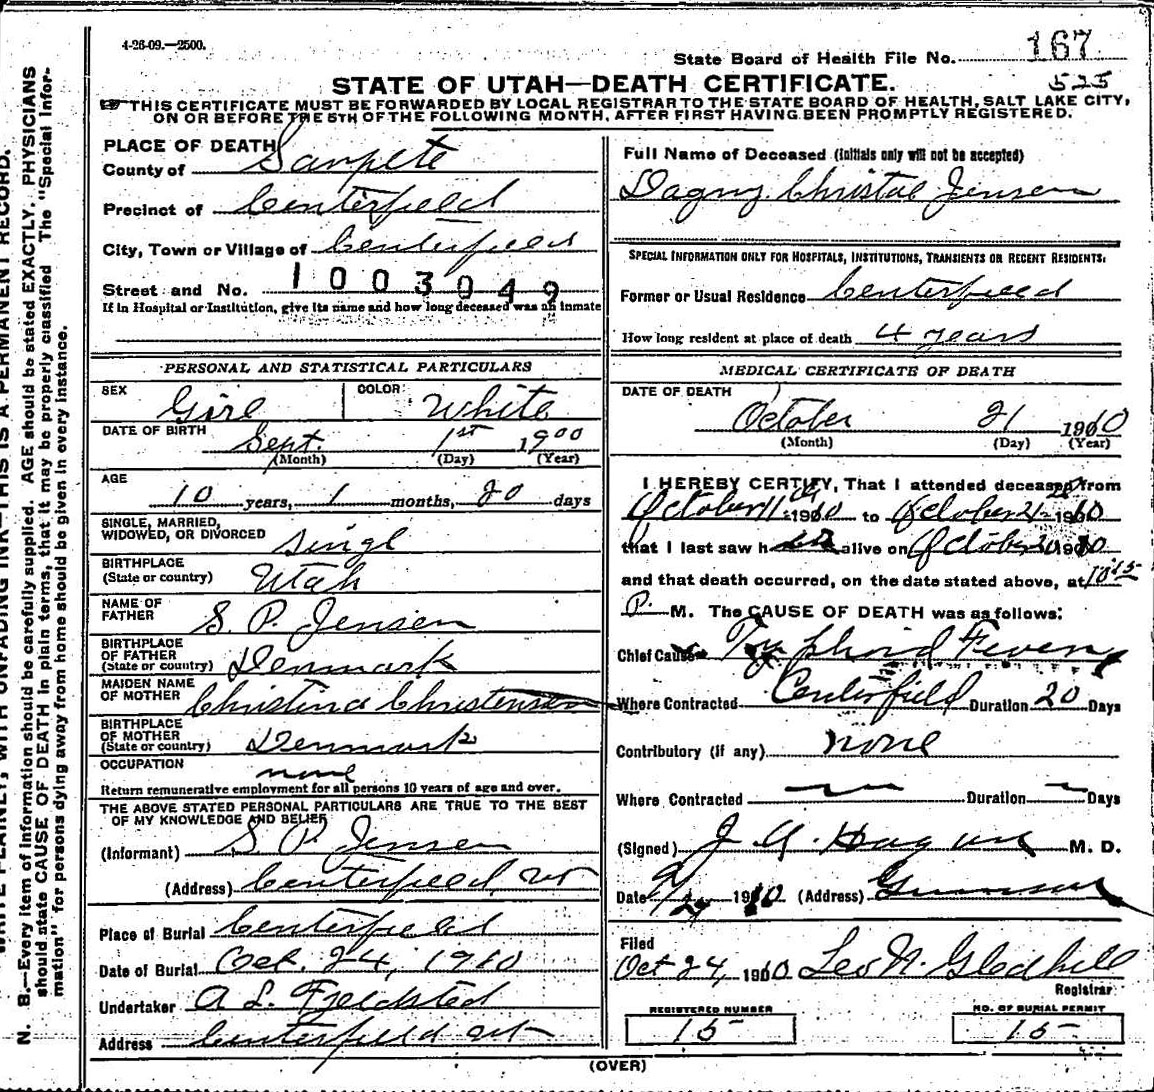 4-26-09.—2500.
State Board of Health File No. 167
525
STATE OF UTAH—DEATH CERTIFICATE.
THIS CERTIFICATE MUST BE FORWARDED BY LOCAL REGISTRAR TO THE STATE BOARD OF HEALTH, SALT LAKE CITY,
ON OR BEFORE THE 5TH OF THE FOLLOWING MONTH, AFTER FIRST HAVING BEEN PROMPTLY REGISTERED.
PLACE OF DEATH
County of Sanpete
Precinct of Centerfield
City, Town or Village of Centerfield
Street and No. 1003049
If in Hospital or Institution, give its name and how long deceased was an inmate
PERSONAL AND STATISTICAL PARTICULARS
SEX Girl COLOR White
DATE OF BIRTH Sept. 1st 1900
(Month) (Day) (Year)
AGE
10 years, 1 months, 20 days
SINGLE, MARRIED,
WIDOWED, OR DIVORCED singl
BIRTHPLACE
(State or country) Utah
NAME OF
FATHER S. P. Jensen
BIRTHPLACE
OF FATHER
(State or country) Denmark
MAIDEN NAME
OF MOTHER Christina Christensen
BIRTHPLACE
OF MOTHER
(State or country) Denmark
OCCUPATION none
Return remunerative employment for all persons 10 years of age and over.
THE ABOVE STATED PERSONAL PARTICULARS ARE TRUE TO THE BEST
OF MY KNOWLEDGE AND BELIEF
(Informant) S. P. Jensen
(Address) Centerfield, Ut
Place of Burial Centerfield
Date of Burial Oct. 24, 1910
Undertaker A L. Fjeldsted
Address Centerfield Ut
Full Name of Deceased (Initials only will not be accepted)
Dagny Christal Jensen
SPECIAL INFORMATION ONLY FOR HOSPITALS, INSTITUTIONS, TRANSIENTS OR RECENT RESIDENTS:
Former or Usual Residence Centerfield
How long resident at place of death 4 years
MEDICAL CERTIFICATE OF DEATH
DATE OF DEATH
October 21 1910
(Month) (Day) (Year)
I HEREBY CERTIFY, That I attended deceased from
October 11th 1910 to October 21 1910
that I last saw her alive on October 20 1910
and that death occurred, on the date stated above, at 10 15
P. M. The CAUSE OF DEATH was as follows:
Chief Cause Typhoid Fever
Where Contracted Centerfield Duration 20 Days
Contributory (if any) none
Where Contracted Duration Days
(Signed) J. A. Hagan M. D.
Date 1910. (Address) Gunnison
Filed
Oct 24, 1910 Leo N. Gledhill
Registrar
REGISTERED NUMBER
15
NO. OF BURIAL PERMIT
15
(OVER)
N. B.—Every item of information should be carefully supplied. AGE should be stated EXACTLY. PHYSICIANS
should state CAUSE OF DEATH in plain terms, that it may be properly classified. The "Special Infor-
mation" for persons dying away from home should be given in every instance.
WRITE PLAINLY, WITH UNFADING INK—THIS IS A PERMANENT RECORD.